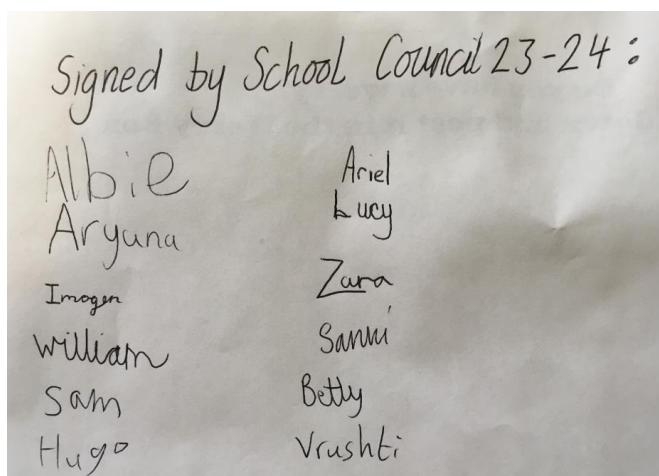 Signed by School Council 23-24:
Albie
Aryana
Imogen
William
Sam
Hugo
Ariel
Lucy
Zara
Betty
Vrushti